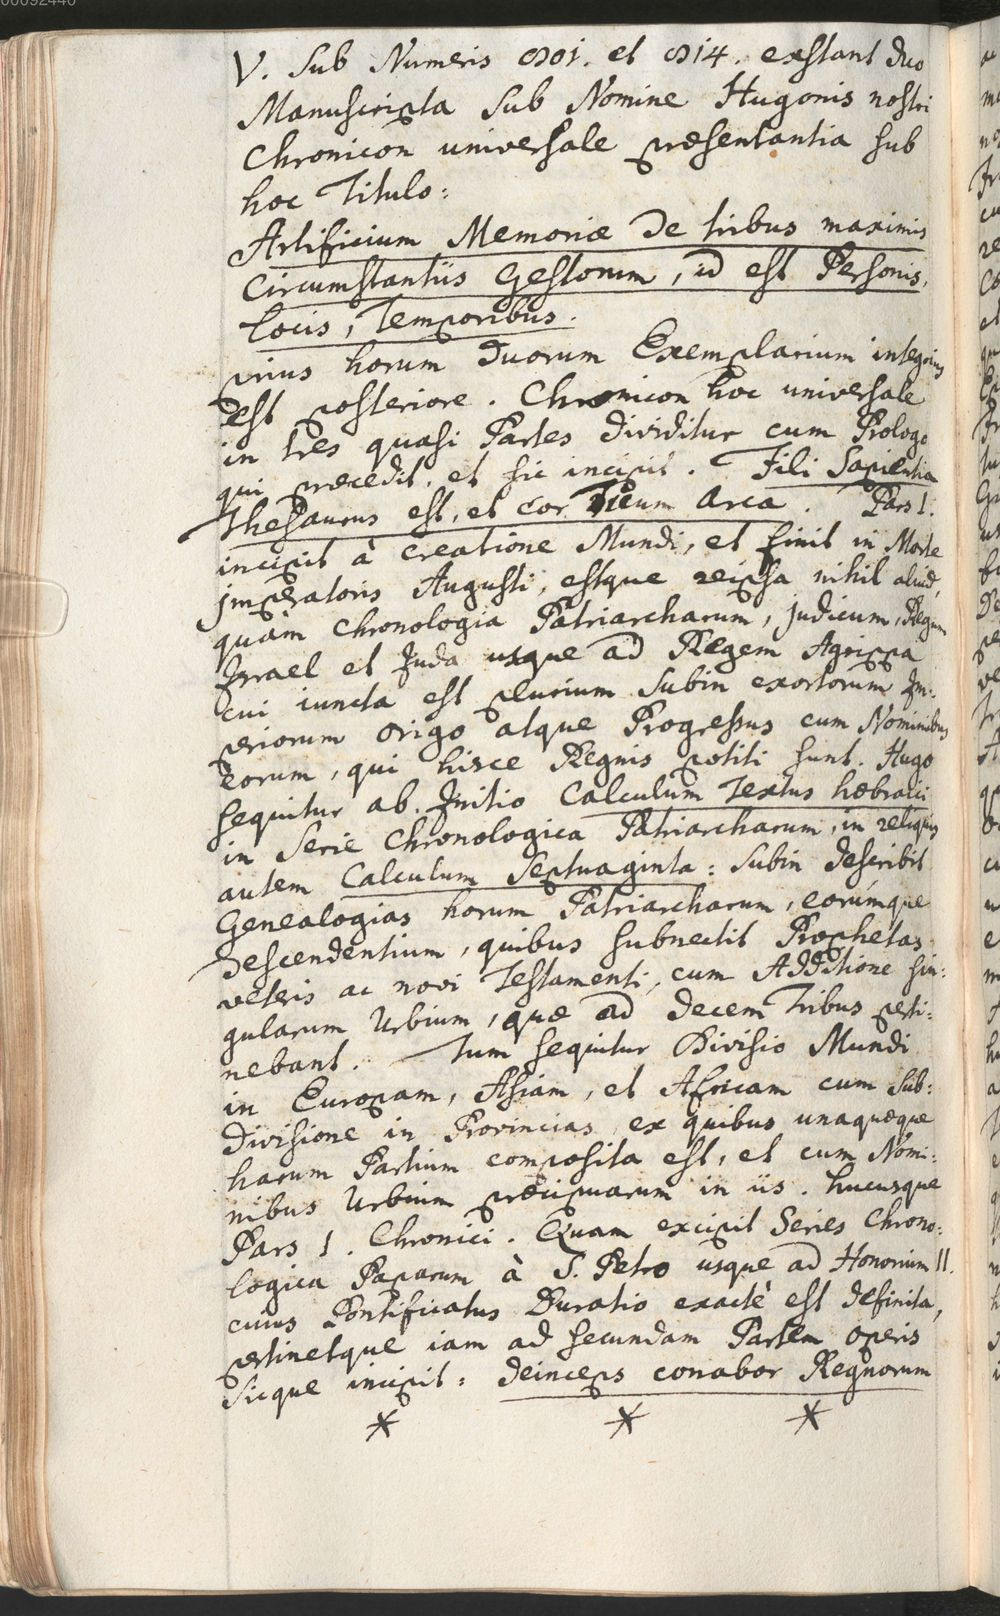 00092440
V. Sub Numeris 801. et 814. exstant duo
Manuscripta sub Nomine Hugonis nostri
Chronicon universale præsentantia sub
hoc Titulo:
Artificium Memoriæ de tribus maximis
Circumstantiis Gestorum, id est Personis,
Locis, Temporibus.
prius horum duorum Exemplarium integrius
est posteriore. Chronicon hoc universale
in tres quasi Partes dividitur cum Prologo
qui præcedit, et sic incipit. Fili Sapientia
Thesaurus est, et cor Tuum Arca. Pars I.
incipit à creatione Mundi, et finit in Morte
Imperatoris Augusti, estque reipsa nihil aliud,
quàm Chronologia Patriarcharum, judicum, Regum
Israel et Juda usque ad Regem Agrippa
cui iuncta est plurium subin exortorum Im:
periorum origo atque Progressus cum Nominibus
eorum, qui hisce Regnis potiti sunt. Hugo
sequitur ab Initio Calculum Textus hæbraici
in Serie Chronologica Patriarcharum, in reliquis
autem Calculum Septuaginta: subin describit
Genealogias horum Patriarcharum, eorúmque
descendentium, quibus subnectit Prophetas
veteris ac novi Testamenti, cum Additione sin:
gularum Urbium, quæ ad decem Tribus perti:
nebant. Tum sequitur Divisio Mundi
in Europam, Asiam, et Africam cum sub:
divisione in Provincias, ex quibus unaquæque
harum Partium composita est, et cum Nomi:
nibus Urbium præcipuarum in iis. hucusque
Pars I. Chronici. Quam excipit Series Chrono:
logica Paparum à S. Petro usque ad Honorium II.
cuius Pontificatus Duratio exactè est definita,
pertinetque iam ad secundam Partem Operis
sicque incipit: deinceps conabor Regnorum
* * *